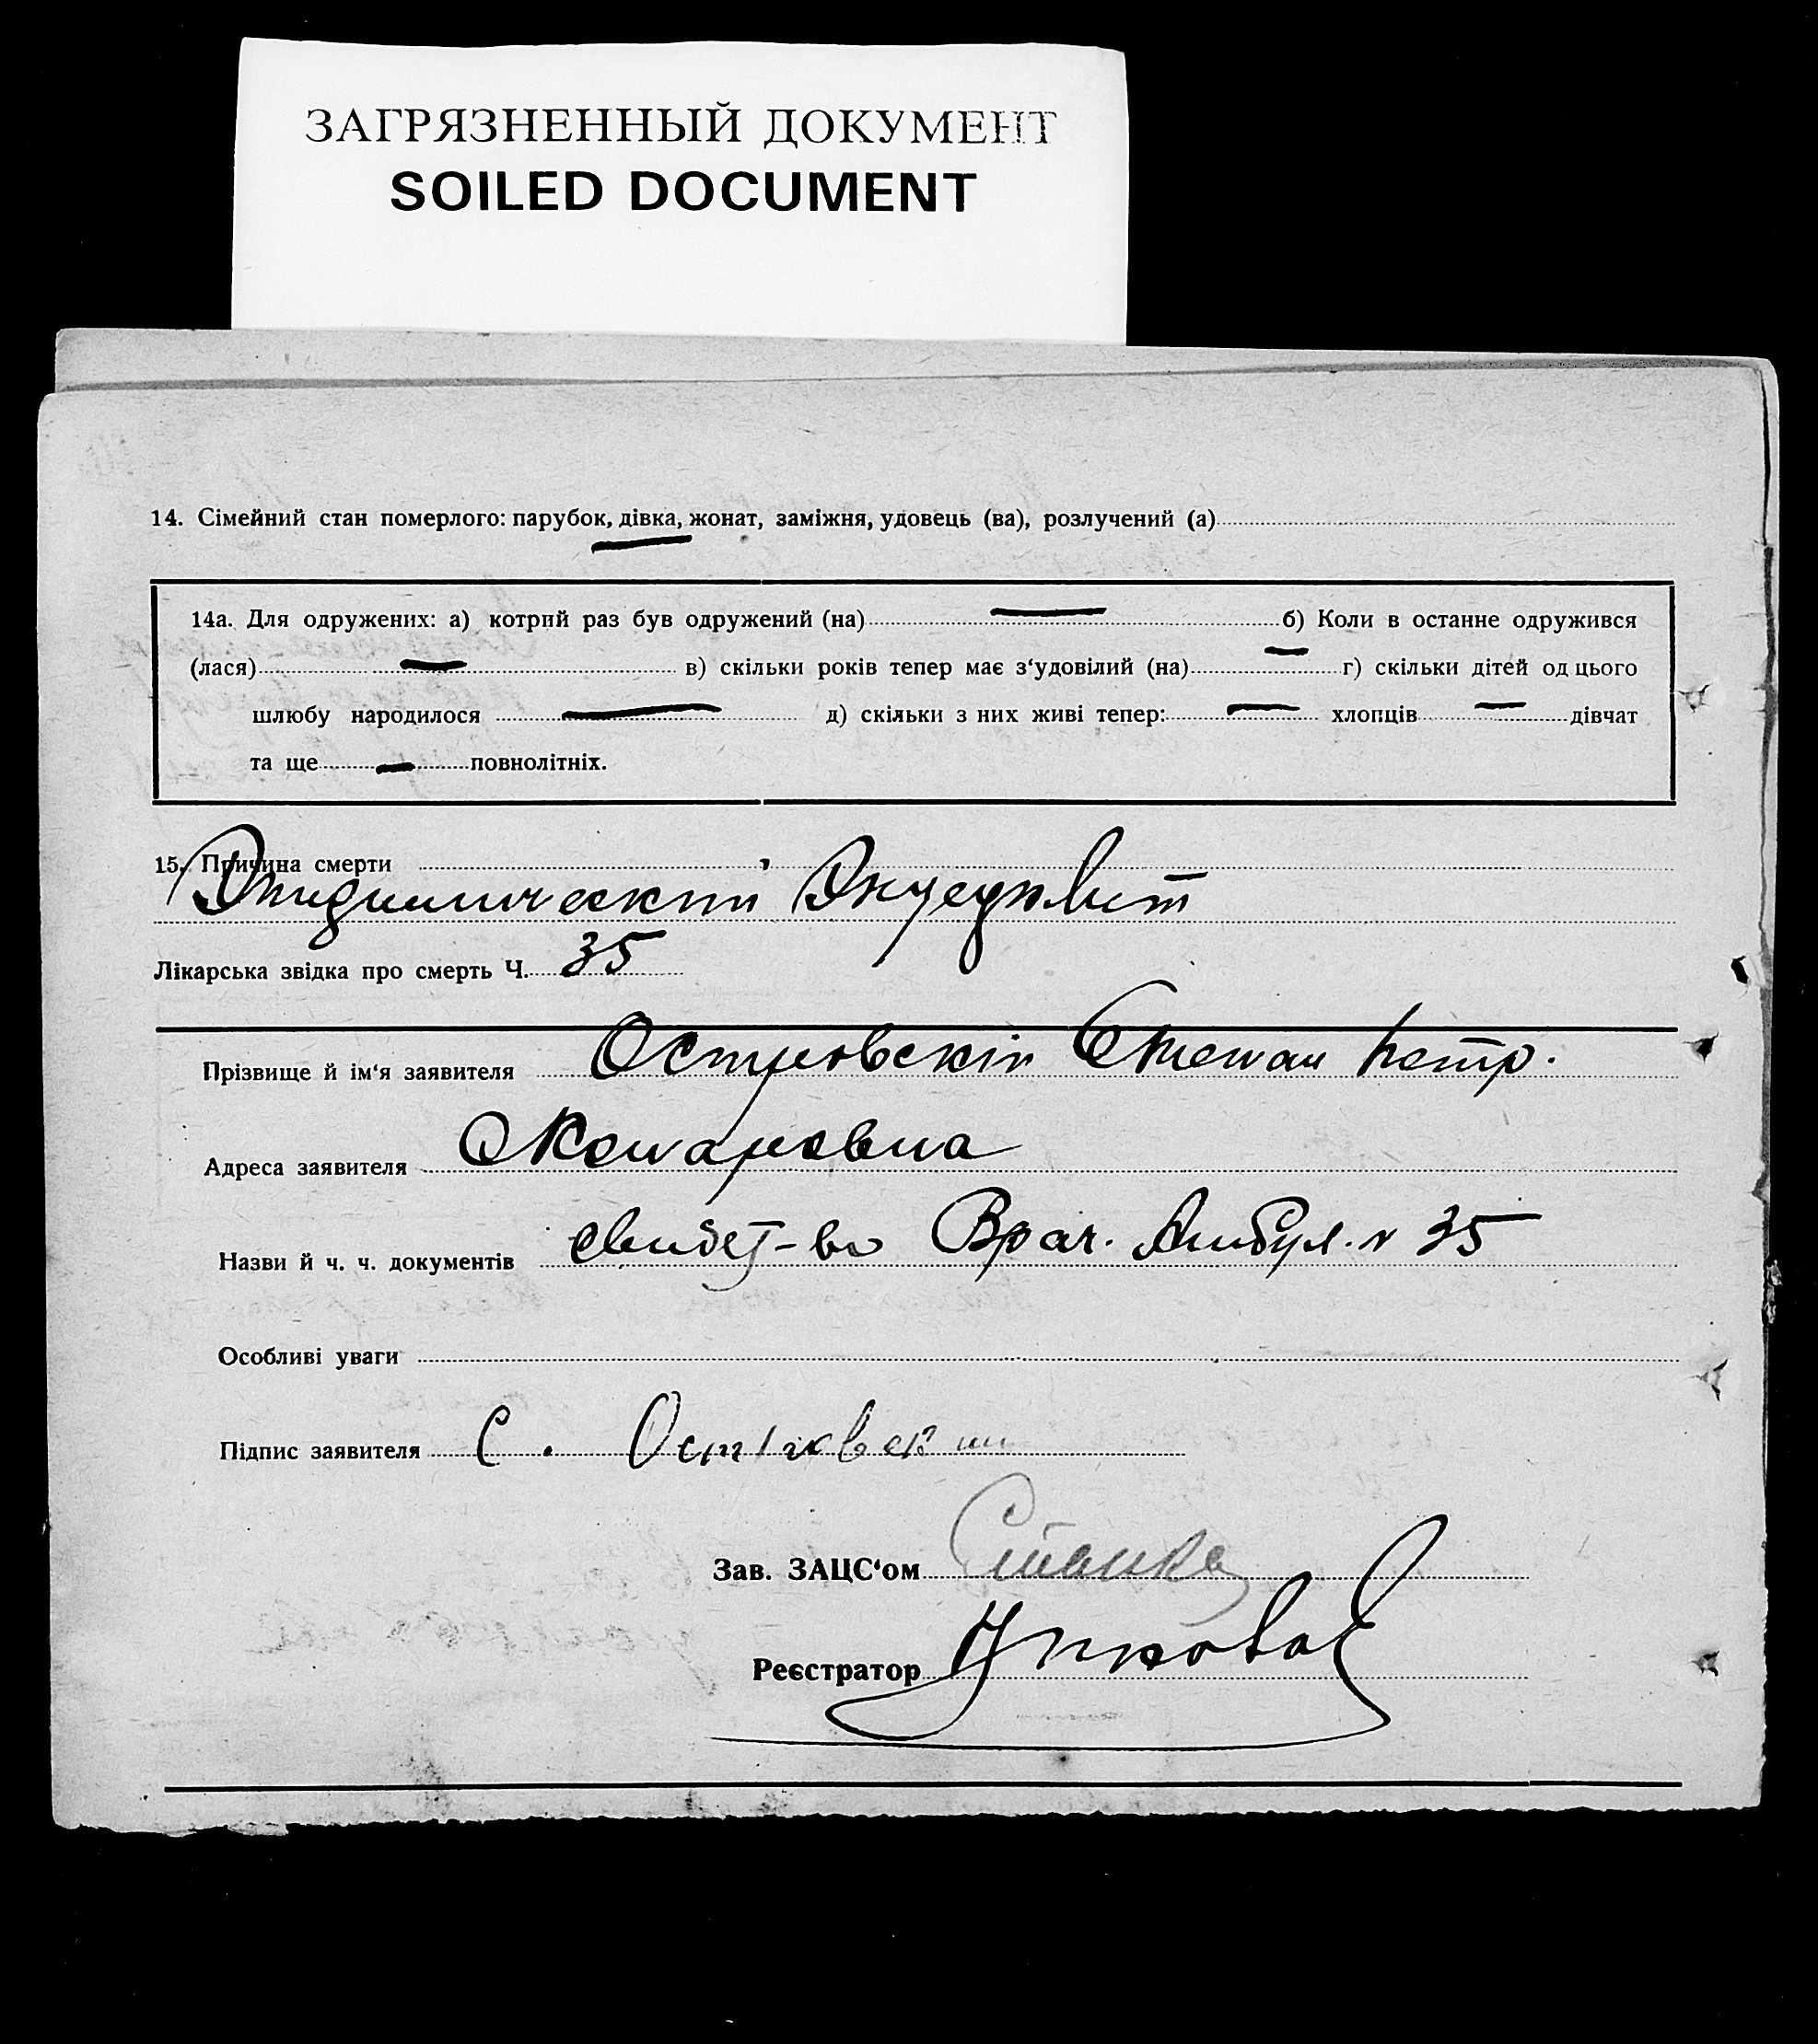 ЗАГРЯЗНЕННЫЙ ДОКУМЕНТ
SOILED DOCUMENT
14. Сімейний стан померлого: парубок, дівка, жонат, заміжня, удовець (ва), розлучений (а)
14а. Для одружених: а) котрий раз був одружений (на) — б) Коли в останне одружився
(лася) — в) скільки років тепер має з‘удовілий (на) — г) скільки дітей од цього
шлюбу народилося — д) скільки з них живі тепер: — хлопців — дівчат
та ще — повнолітніх.
15. Причина смерти
Эпидимический Энцефалит
Лікарська звідка про смерть Ч. 35
Прізвище й ім‘я заявителя Островскій Степан Петр.
Адреса заявителя
Назви й ч. ч. документів свидет-во Врач. Амбул. № 35
Особливі уваги
Підпис заявителя С. Островский
Зав. ЗАЦС‘ом
Реєстратор